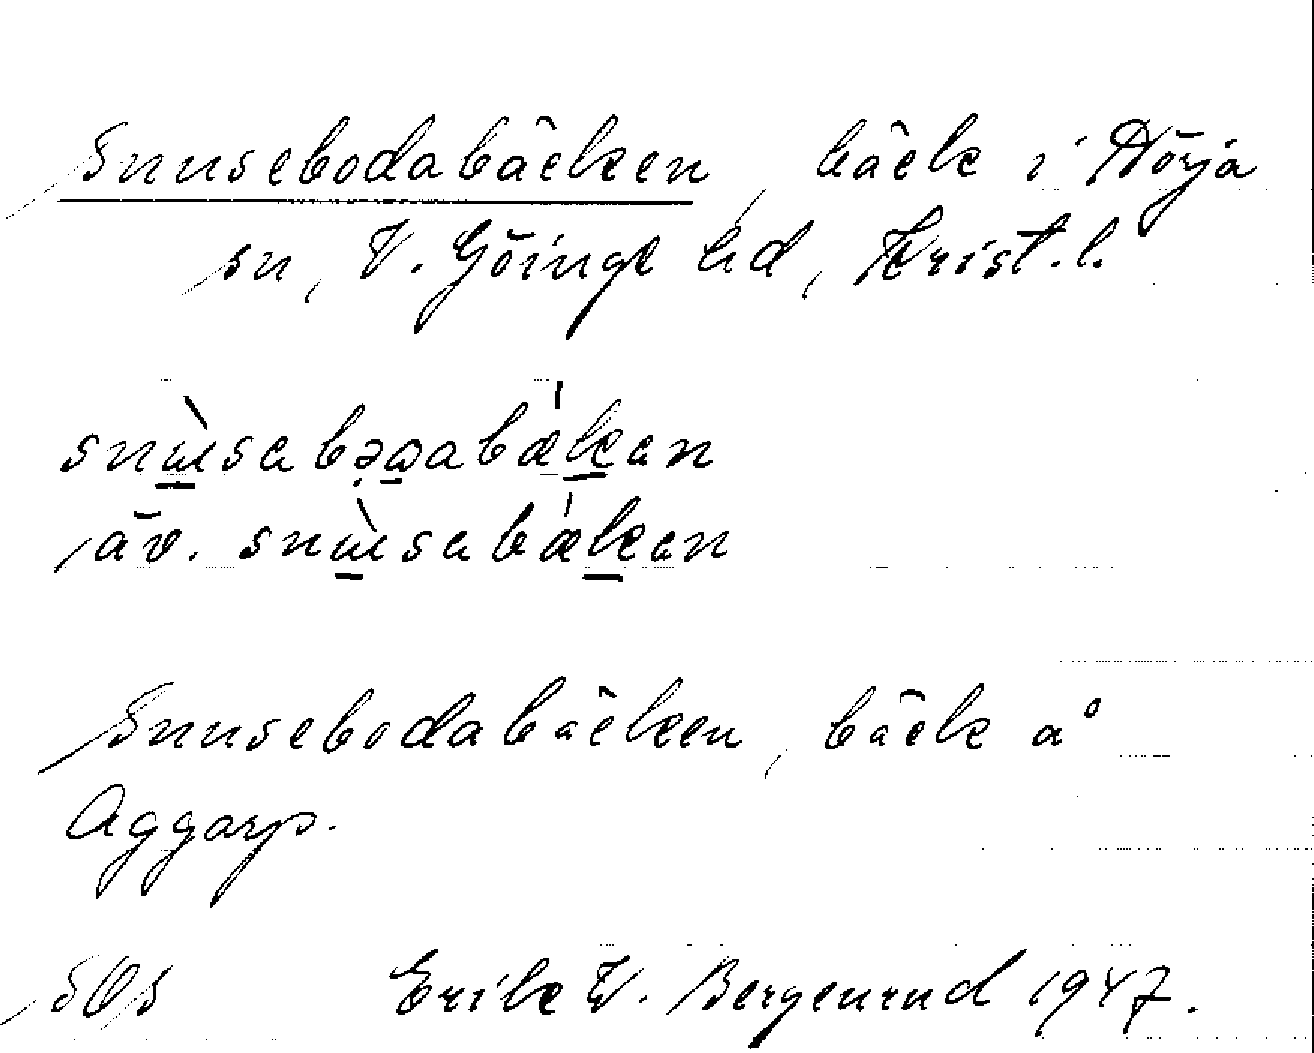 Snusebodabäcken, bäck i Hörja
sn, V. Göinge hd, Krist. l.
snɯ̀sabəɷabǽkan
äv. snɯ̀sabǽkan
Snusebodabäcken, bäck å
Aggarp.
SOS Erik W. Bergenrud 1947.